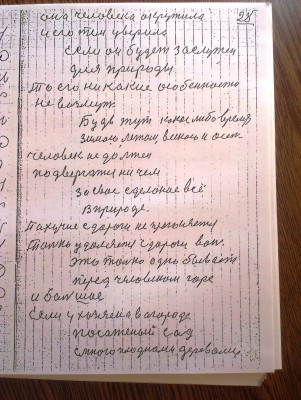 она человека окружила 28
и его тем уверила
если он будет заслужен
для природы
То его никакие особенности
не возьмут.
Будь тут какое либо время
зимою, летом, весною и осен.
человек не должен
подвергати ничем
за свое сделоное всё
в природе.
Пахучие с дороги не прогоняете
Только удаляете с дороги вон.
Это только одно бывает
перед человеком горе
и большое
Если у хозяина в огороде
посаженый сад
с многоплодными деревами